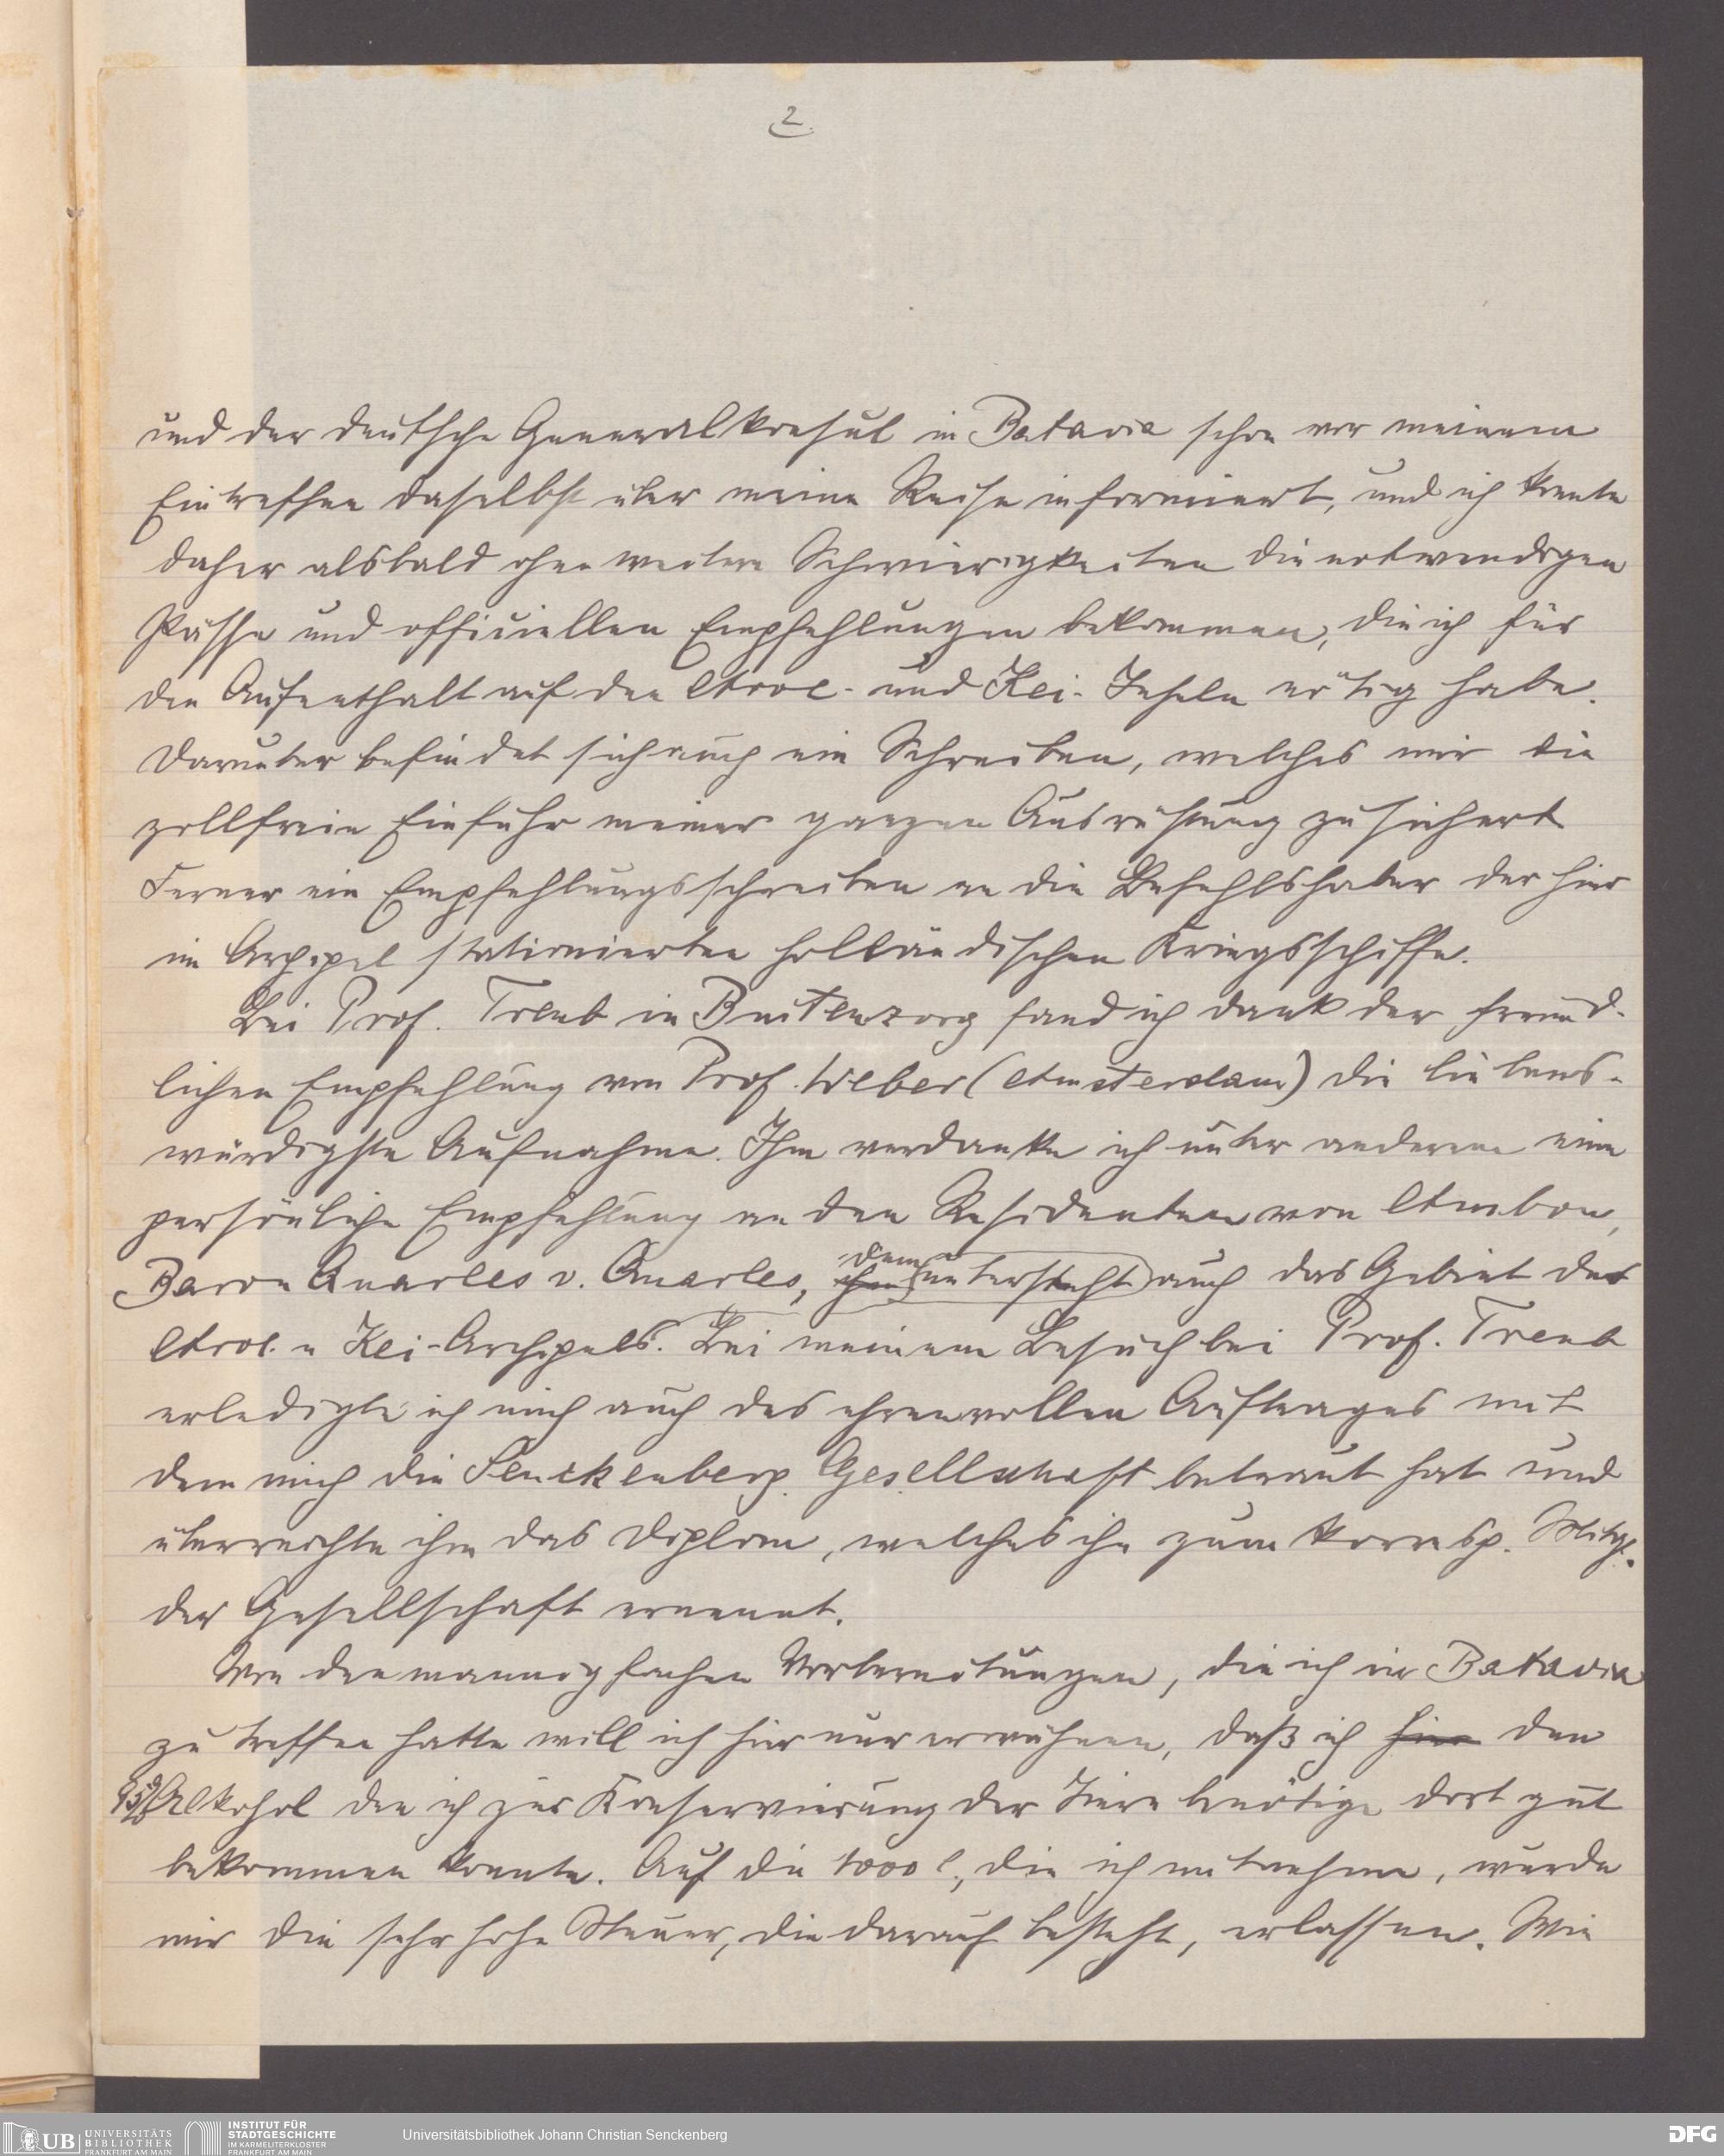 2.
und der deutsche Generalkonsul in Batavia schon vor meinem
Eintreffen daselbst über meine Reise informiert, und ich konnte
daher alsbald ohne weitere Schwierigkeiten die notwendigen
Pässe und officiellen Empfehlungen bekommen, die ich für
den Aufenthalt auf den Aroe- und Kei-Inseln nötig habe.
Darunter befindet sich auch ein Schreiben, welches mir die
zollfreie Einfuhr meiner ganzen Ausrüstung zusichert
Ferner ein Empfehlungsschreiben an die Befehlshaber der hier
im Archipel stationierten holländischen Kriegsschiffe.
Bei Prof. Treub in Buitenzorg fand ich dank der freund-
lichen Empfehlung von Prof. Weber (Amsterdam) die liebens-
würdigste Aufnahme. Ihm verdanke ich unter anderem eine
persönliche Empfehlung an den Residenten von Ambon,
Baron Quarles v. Quarles, dem untersteht auch das Gebiet des
Aroe- u Kei-Archipels. Bei meinem Besuch bei Prof. Treub
erledigte ich mich auch des ehrenvollen Auftrages mit
dem mich die Senckenberg. Gesellschaft betraut hat und
überreichte ihm das Diplom, welches ihn zum korresp. Mitgl.
der Gesellschaft ernennt.
Von den mannigfachen Vorbereitungen, die ich in Batavia
zu treffen hatte will ich hier nur erwähnen, daß ich hier den
95% Alkohol den ich zur Konservierung der Tiere benötige dort gut
bekommen konnte. Auf die 1000 l., die ich mitnehme, wurde
mir die sehr hohe Steuer, die darauf besteht, erlassen. Wie
UB UNIVERSITÄTS
BIBLIOTHEK
FRANKFURT AM MAIN
INSTITUT FÜR
STADTGESCHICHTE
IM KARMELITERKLOSTER
FRANKFURT AM MAIN
Universitätsbibliothek Johann Christian Senckenberg
DFG